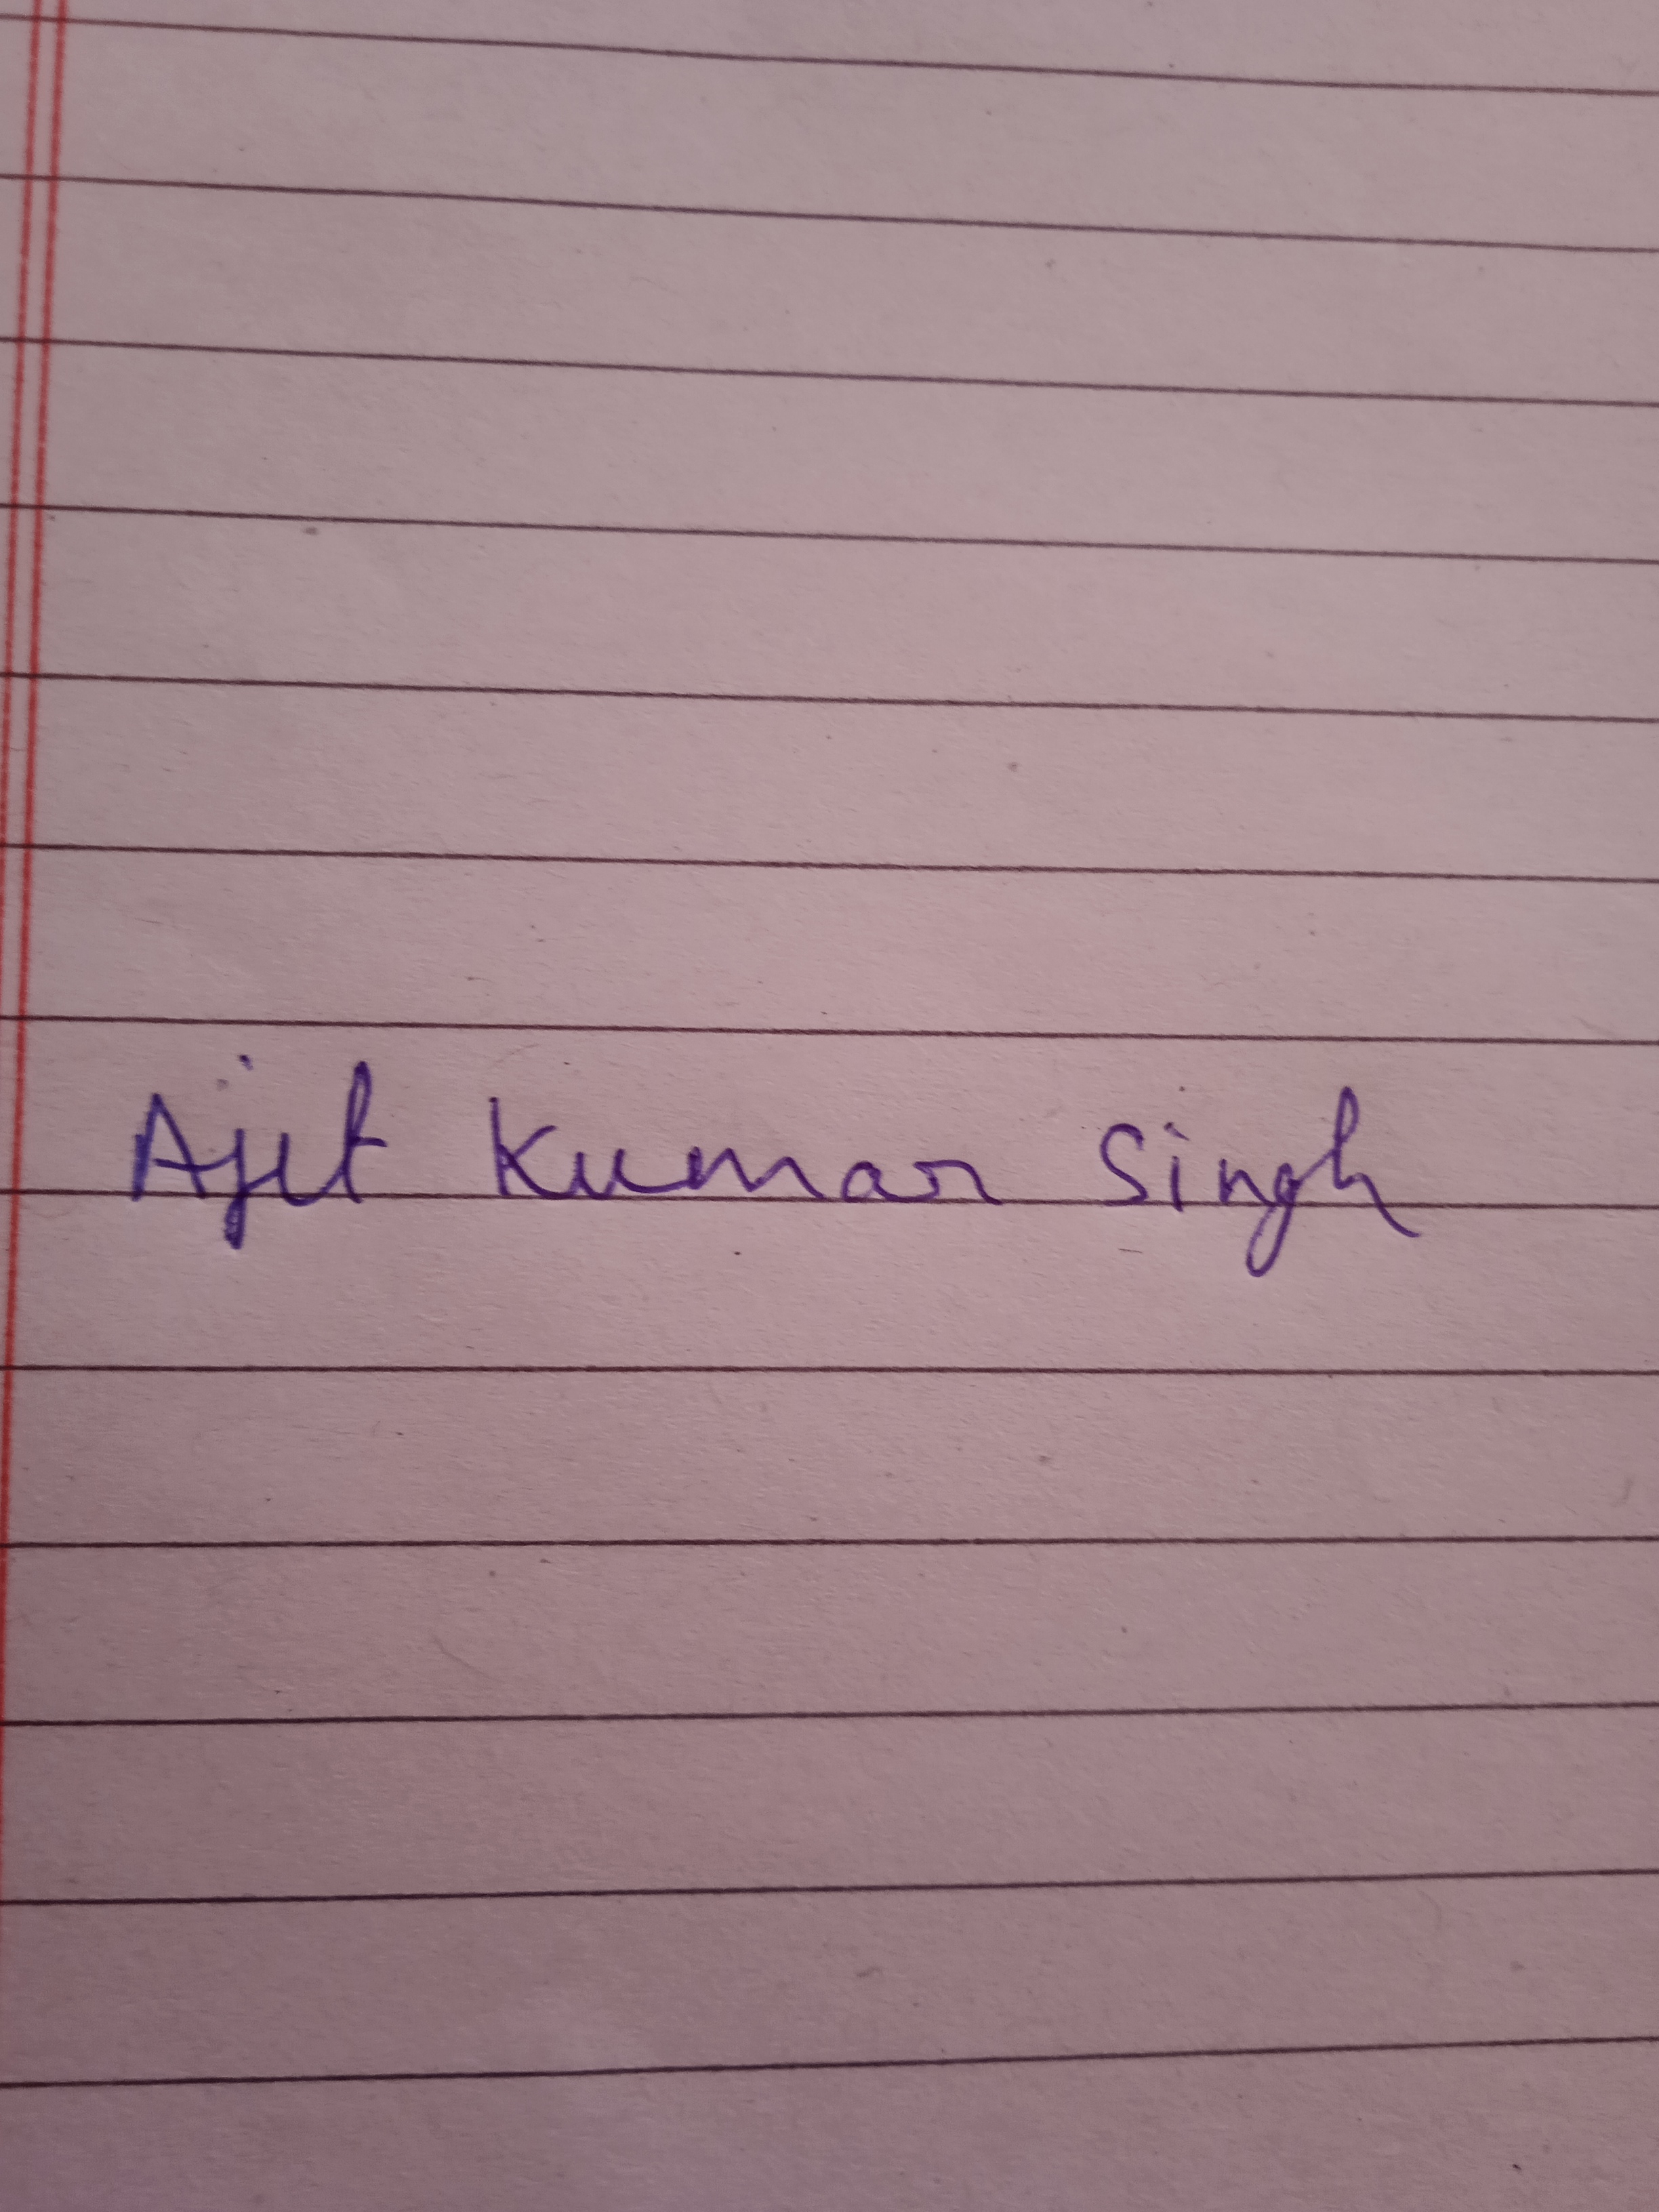 Ajit Kumar Singh